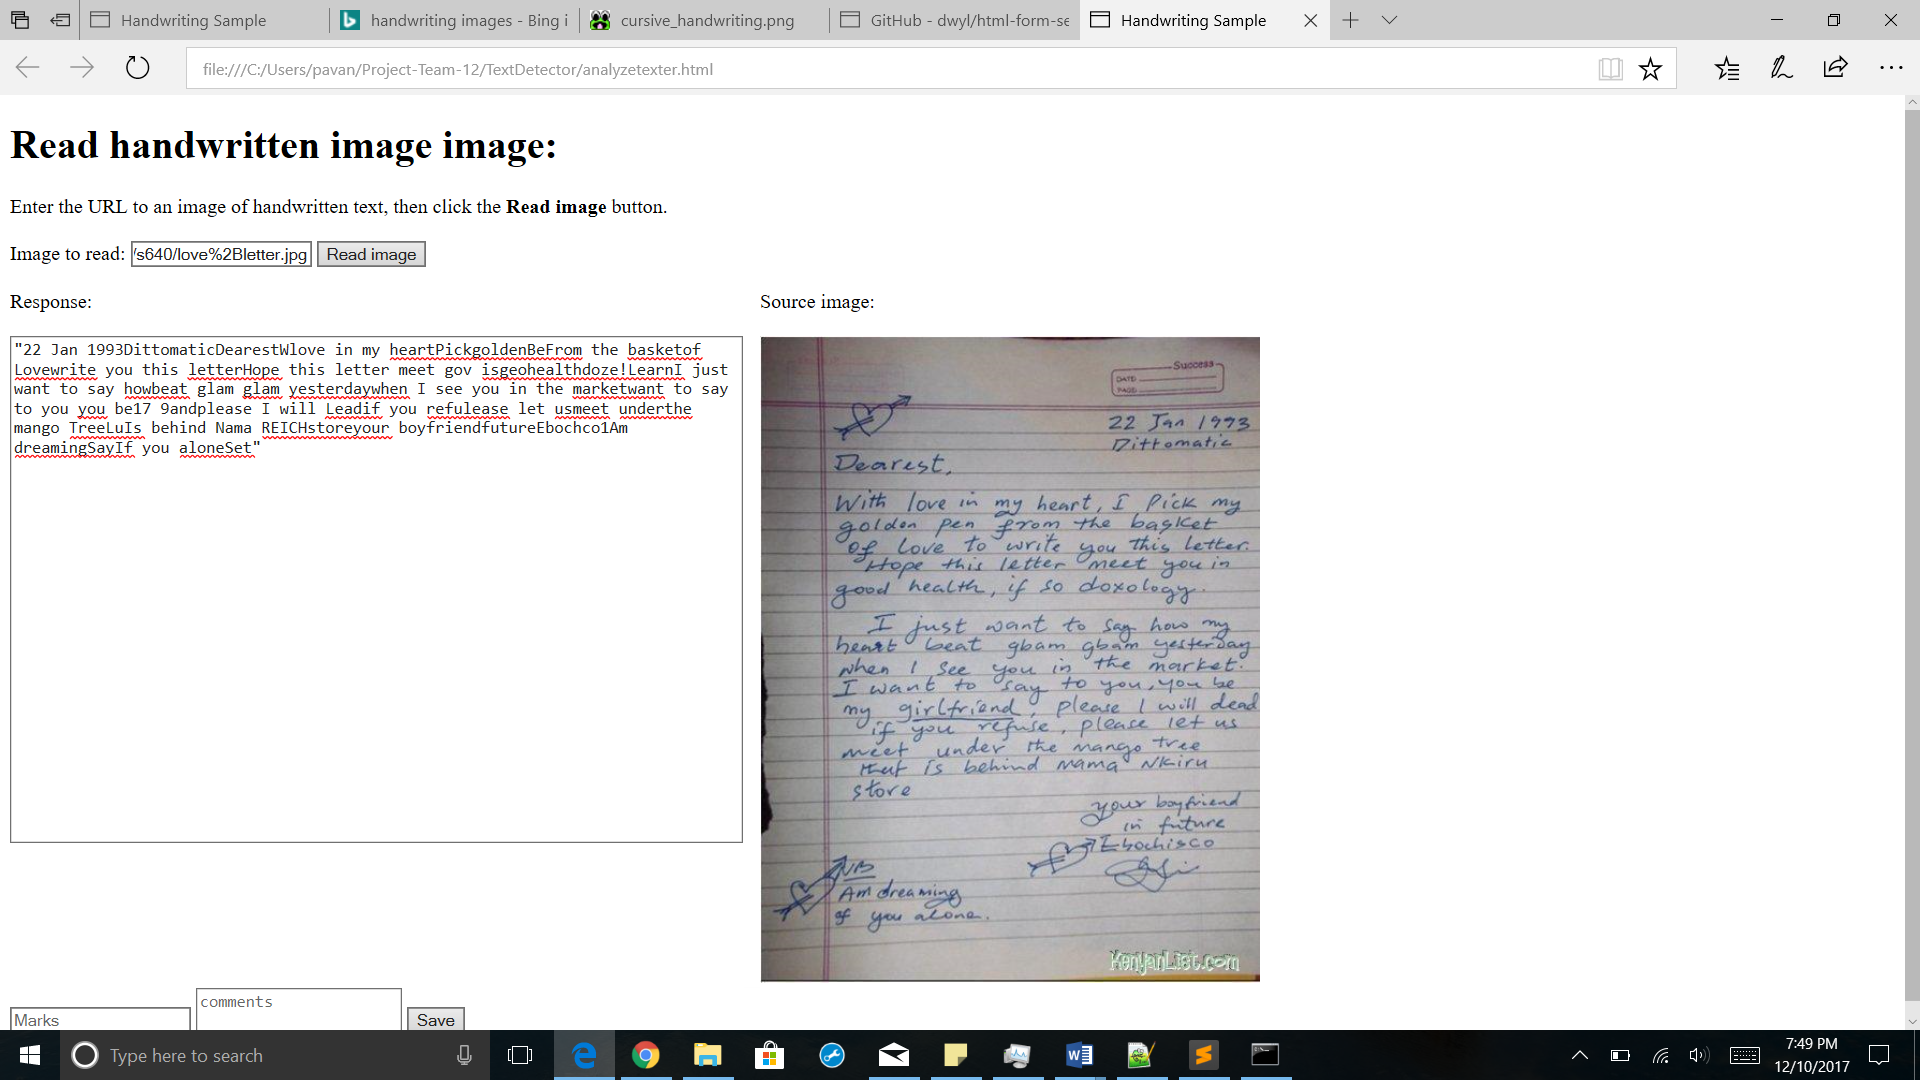 Handwriting Sample
handwriting images - Bing i
cursive_handwriting.png
GitHub - dwyl/html-form-se
Handwriting Sample
file:///C:/Users/pavan/Project-Team-12/TextDetector/analyzetexter.html
Read handwritten image image:
Enter the URL to an image of handwritten text, then click the Read image button.
Image to read: s640/love%2Bletter.jpg Read image
Response:
"22 Jan 1993DittomaticDearestWlove in my heartPickgoldenBeFrom the basketof
Lovewrite you this letterHope this letter meet gov isgeohealthdoze!LearnI just
want to say howbeat glam glam yesterdaywhen I see you in the marketwant to say
to you you be17 9andplease I will Leadif you refulease let usmeet underthe
mango TreeLuIs behind Nama REICHstoreyour boyfriendfutureEbochco1Am
dreamingSayIf you aloneSet"
Source image:
Success
DATE
PAGE
22 Jan 1993
Dittomatic
Dearest,
With love in my heart, I Pick my
golden pen from the basket
of love to write you this letter.
Hope this letter meet you in
good health, if so doxology.
I just want to say how my
heart beat gbam gbam yesterday
when I see you in the market.
I want to say to you, you be
my girlfriend, please I will dead
if you refuse, please let us
meet under the mango tree
that is behind mama Nkiru
store
your boyfriend
in future
Ebochisco
NB
Am dreaming
of you alone.
KenyanList.com
Marks
comments
Save
Type here to search
7:49 PM
12/10/2017